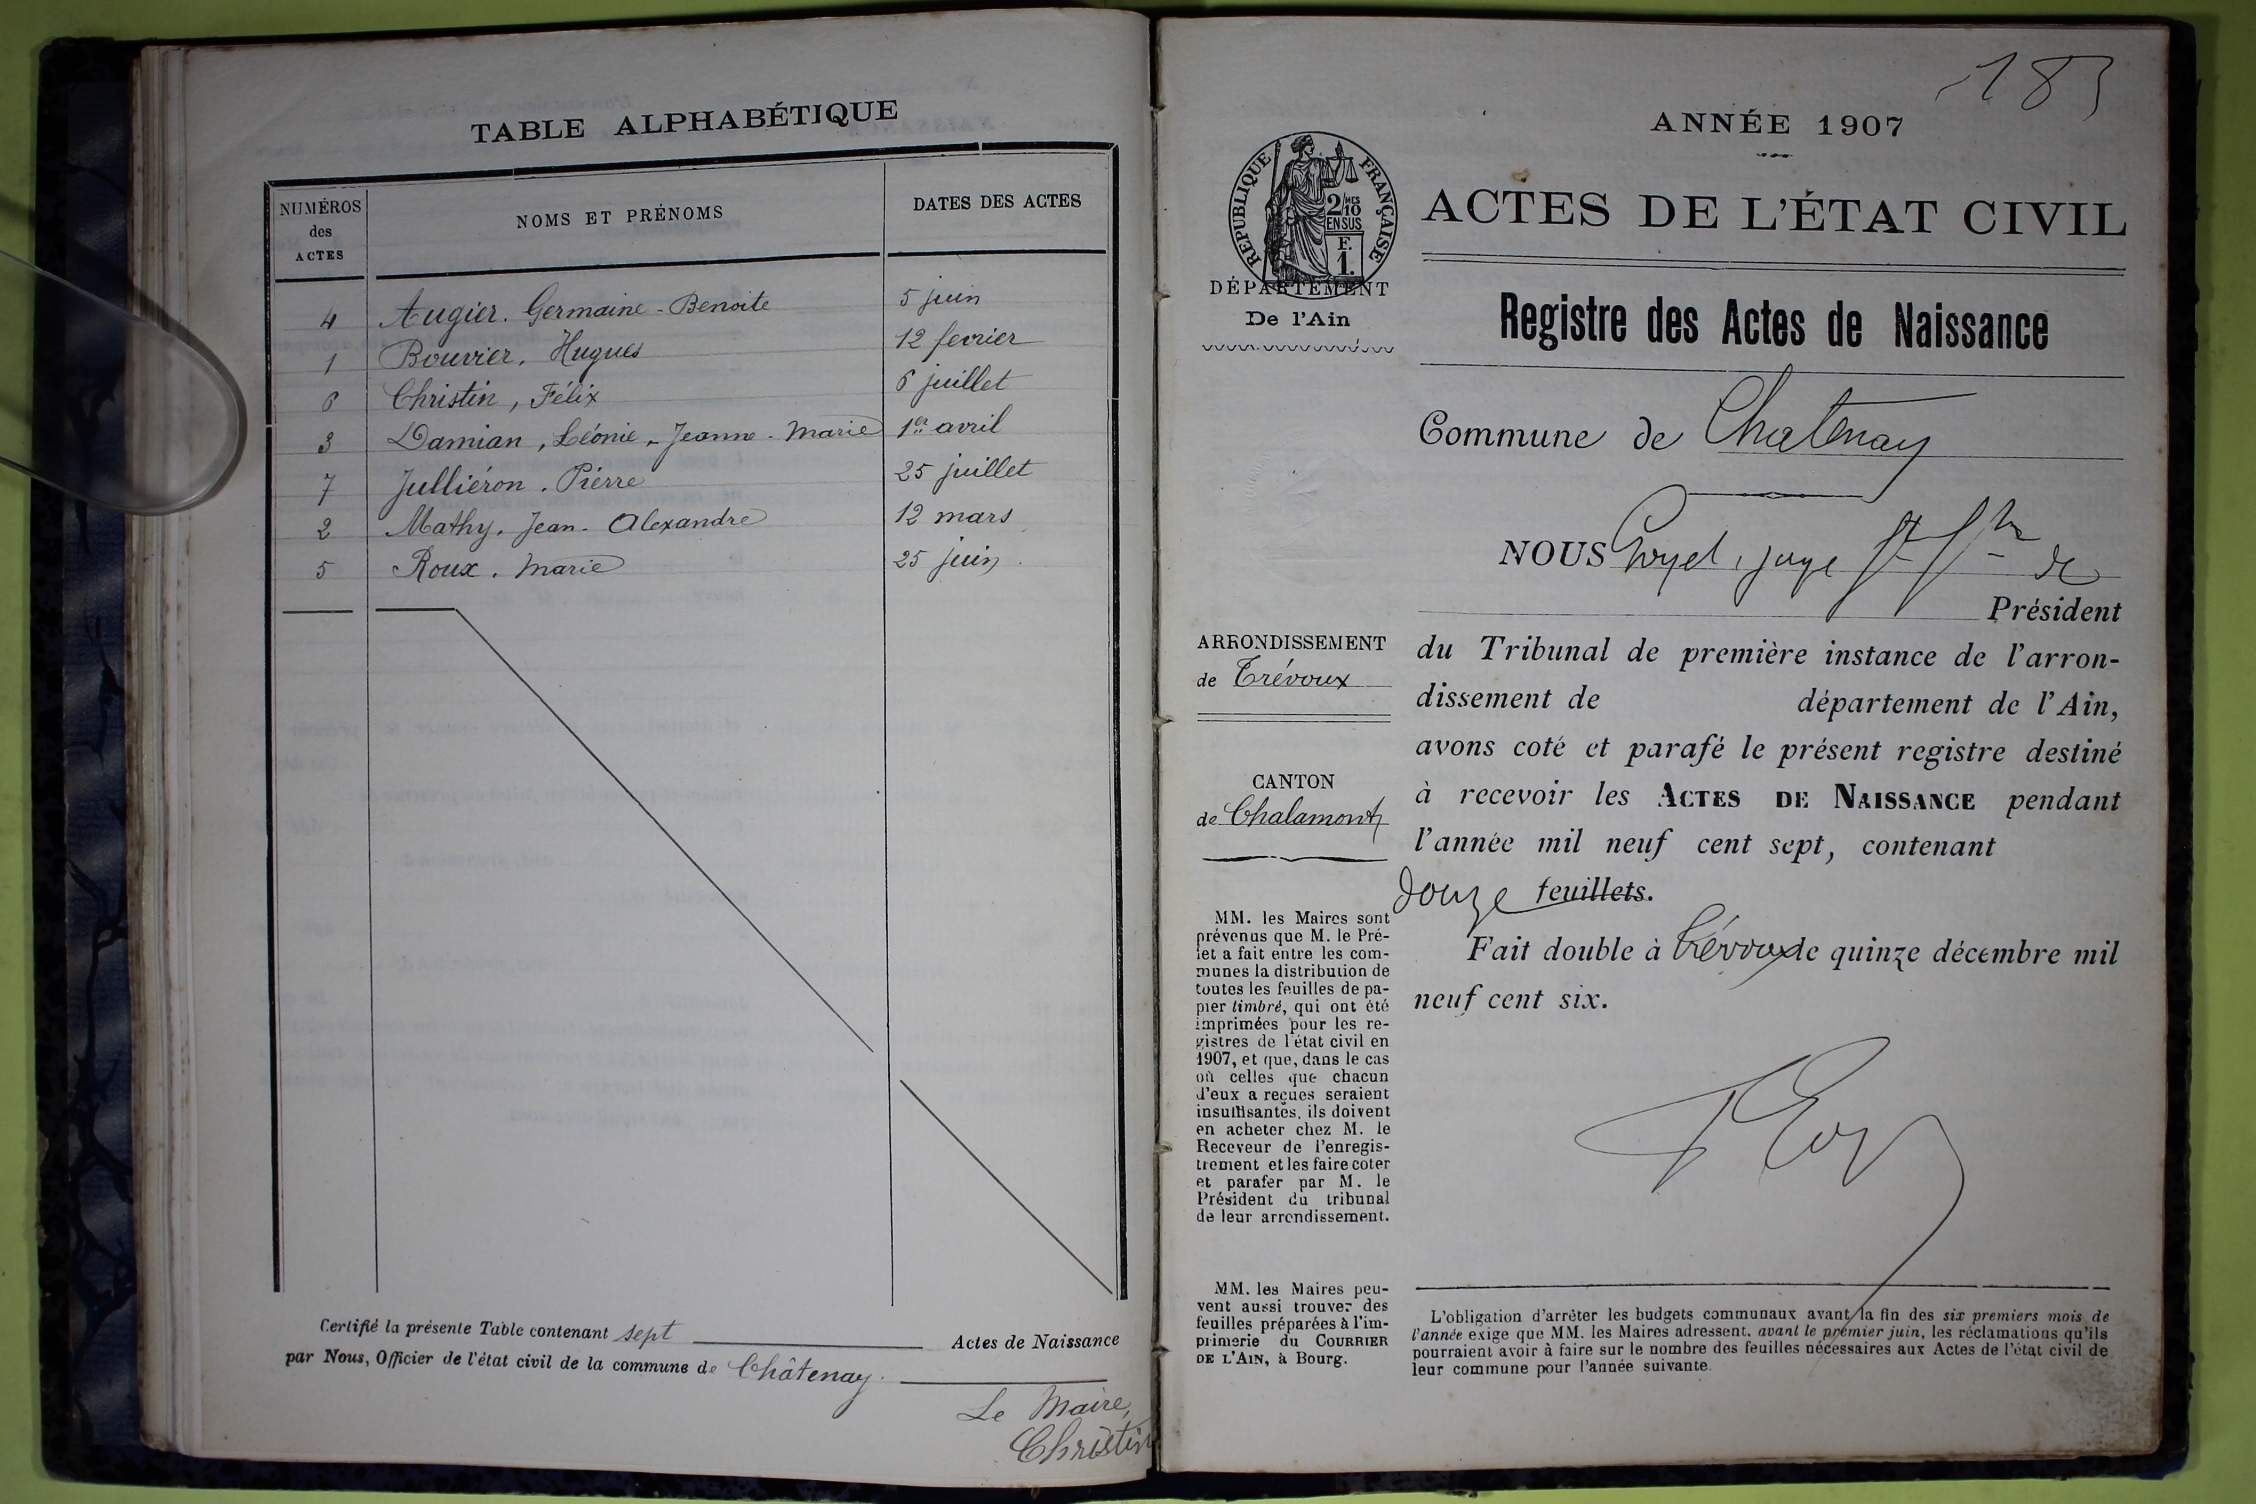 TABLE ALPHABÉTIQUE
NUMÉROS des ACTES
NOMS ET PRÉNOMS
DATES DES ACTES
4 Augier. Germaine - Benoite 5 juin
1 Bouvier, Hugues 12 fevrier
6 Christin, Félix 6 juillet
3 Damian, Léonie - Jeanne - Marie 1er avril
7 Julliéron. Pierre 25 juillet
2 Mathy. Jean - Alexandre 12 mars
5 Roux. Marie 25 juin
Certifié la présente Table contenant sept Actes de Naissance
par Nous, Officier de l'état civil de la commune de Châtenay.
Le Maire,
Christin
183
ANNÉE 1907
RÉPUBLIQUE FRANÇAISE
2/10 MES
EN SUS
F.
1.
ACTES DE L'ÉTAT CIVIL
DÉPARTEMENT
De l'Ain
Registre des Actes de Naissance
Commune de Chatenay
NOUS juge de
Président
ARRONDISSEMENT
de Trévoux
du Tribunal de première instance de l'arron-
dissement de département de l'Ain,
avons coté et parafé le présent registre destiné
CANTON
de Chalamont
à recevoir les ACTES DE NAISSANCE pendant
l'année mil neuf cent sept, contenant
douze feuillets.
Fait double à Trévoux le quinze décembre mil
neuf cent six.
MM. les Maires sont
prévenus que M. le Pré-
fet a fait entre les com-
munes la distribution de
toutes les feuilles de pa-
pier timbré, qui ont été
imprimées pour les re-
gistres de l'état civil en
1907, et que, dans le cas
où celles que chacun
d'eux a reçues seraient
insuffisantes, ils doivent
en acheter chez M. le
Receveur de l'enregis-
trement et les faire coter
et parafer par M. le
Président du tribunal
de leur arrondissement.
MM. les Maires peu-
vent aussi trouver des
feuilles préparées à l'im-
primerie du COURRIER
DE L'AIN, à Bourg.
L'obligation d'arrêter les budgets communaux avant la fin des six premiers mois de
l'année exige que MM. les Maires adressent, avant le premier juin, les réclamations qu'ils
pourraient avoir à faire sur le nombre des feuilles nécessaires aux Actes de l'état civil de
leur commune pour l'année suivante.